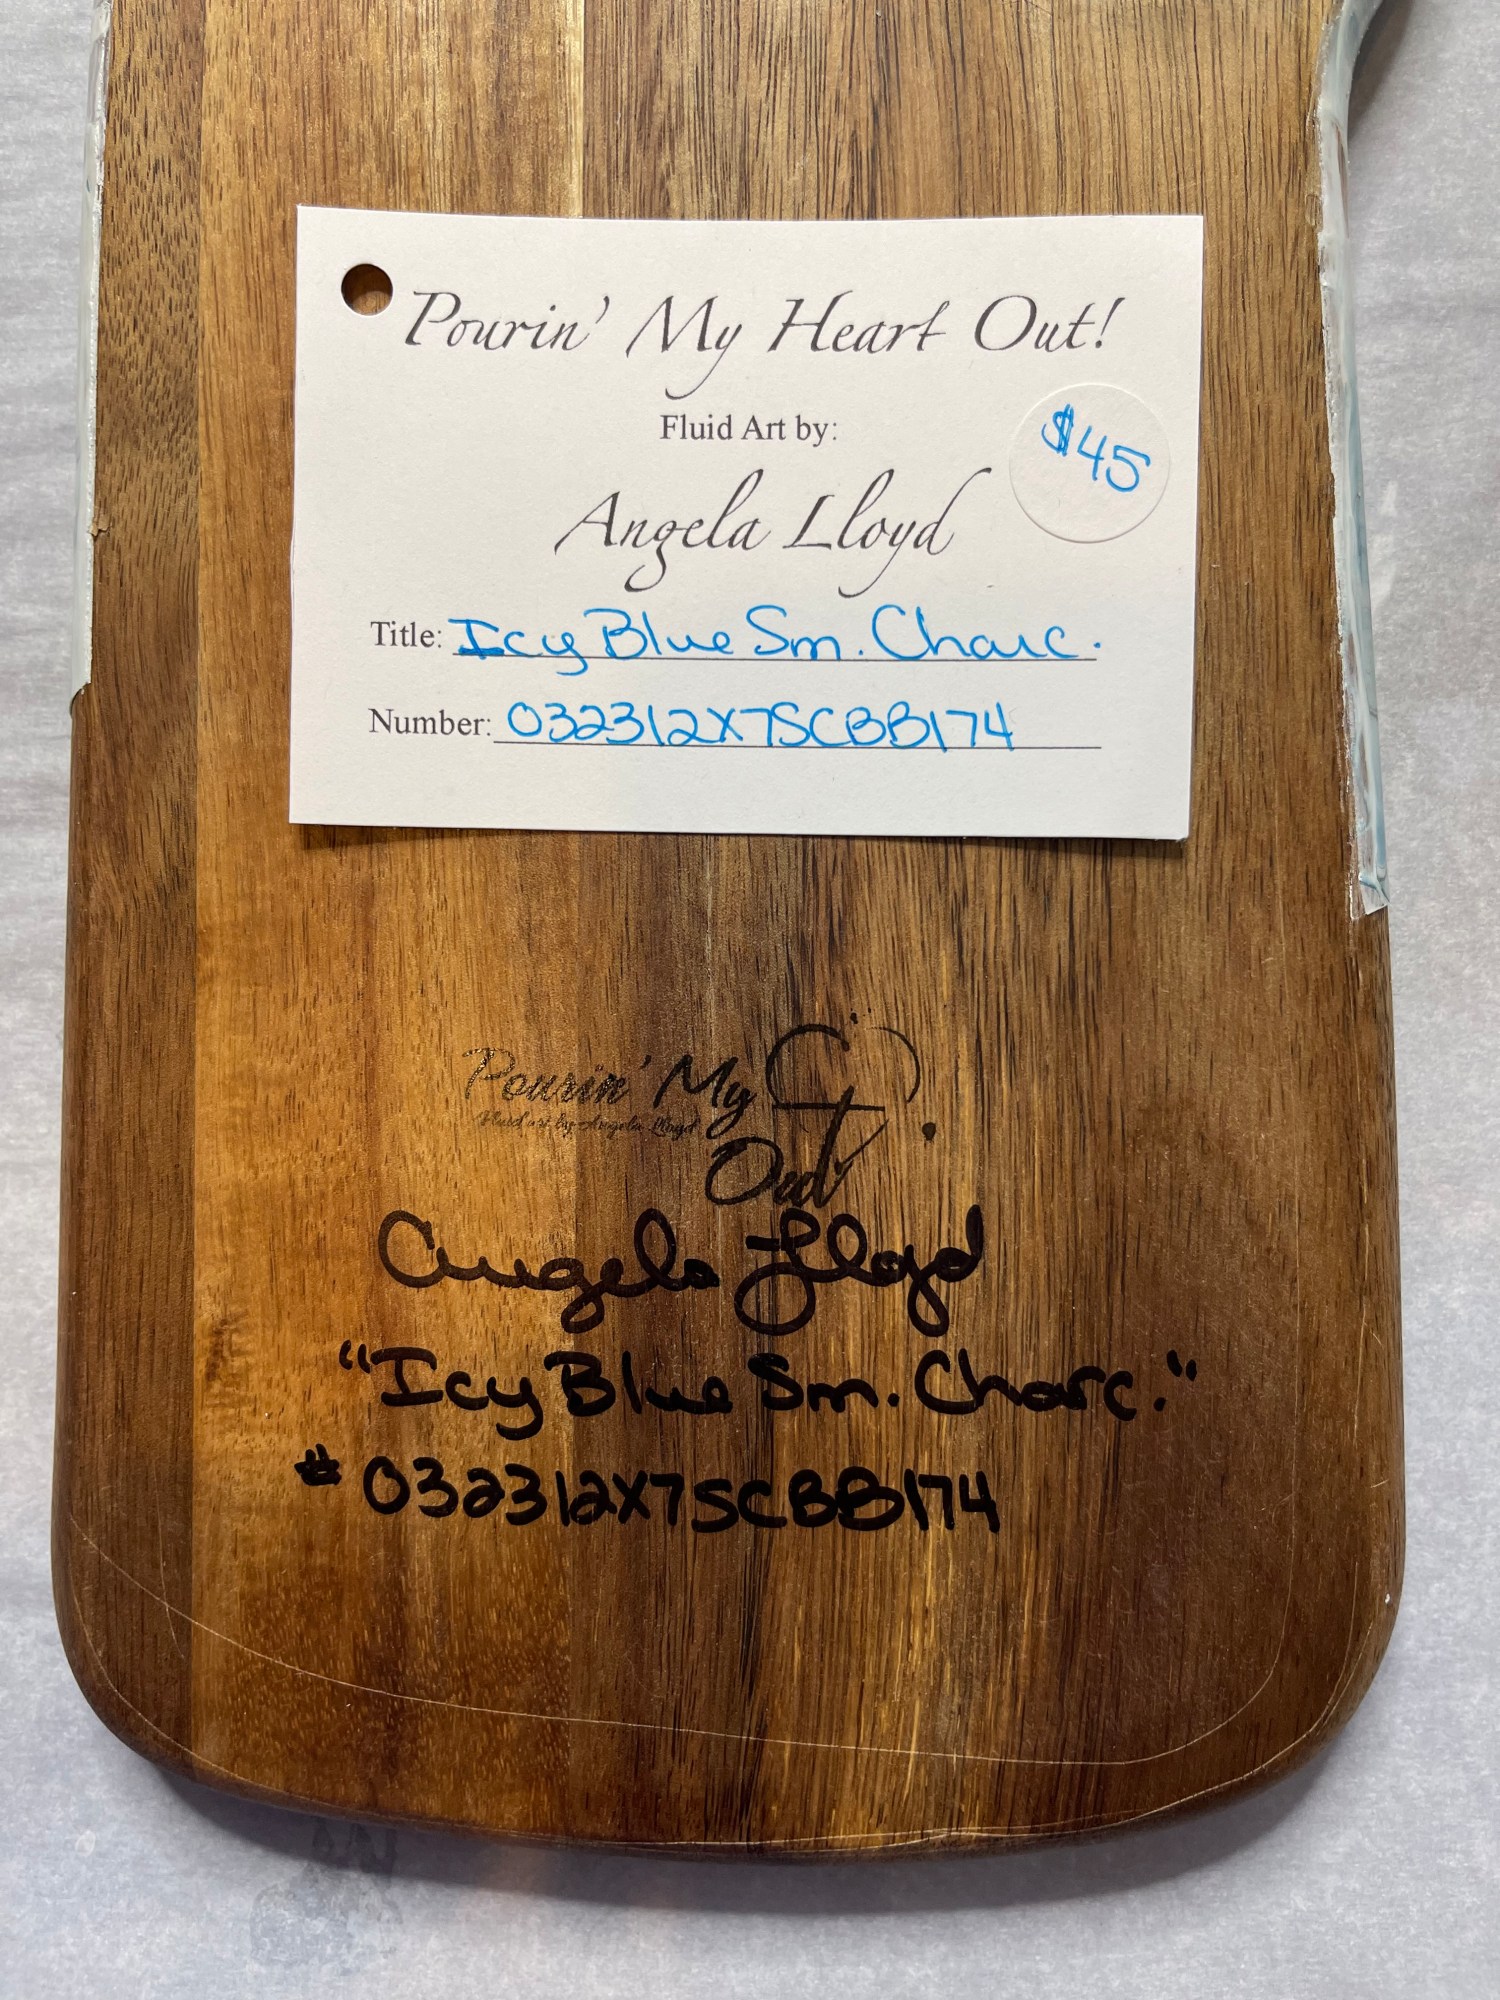 Pourin' My Heart Out!
Fluid Art by:
$45
Angela Lloyd
Title: Icy Blue Sm. Charc.
Number: 032312X7SCBB174
Pourin' My
Fluid art by Angela Lloyd
Out
Angela Lloyd
"Icy Blue Sm. Charc."
# 032312X7SCBB174